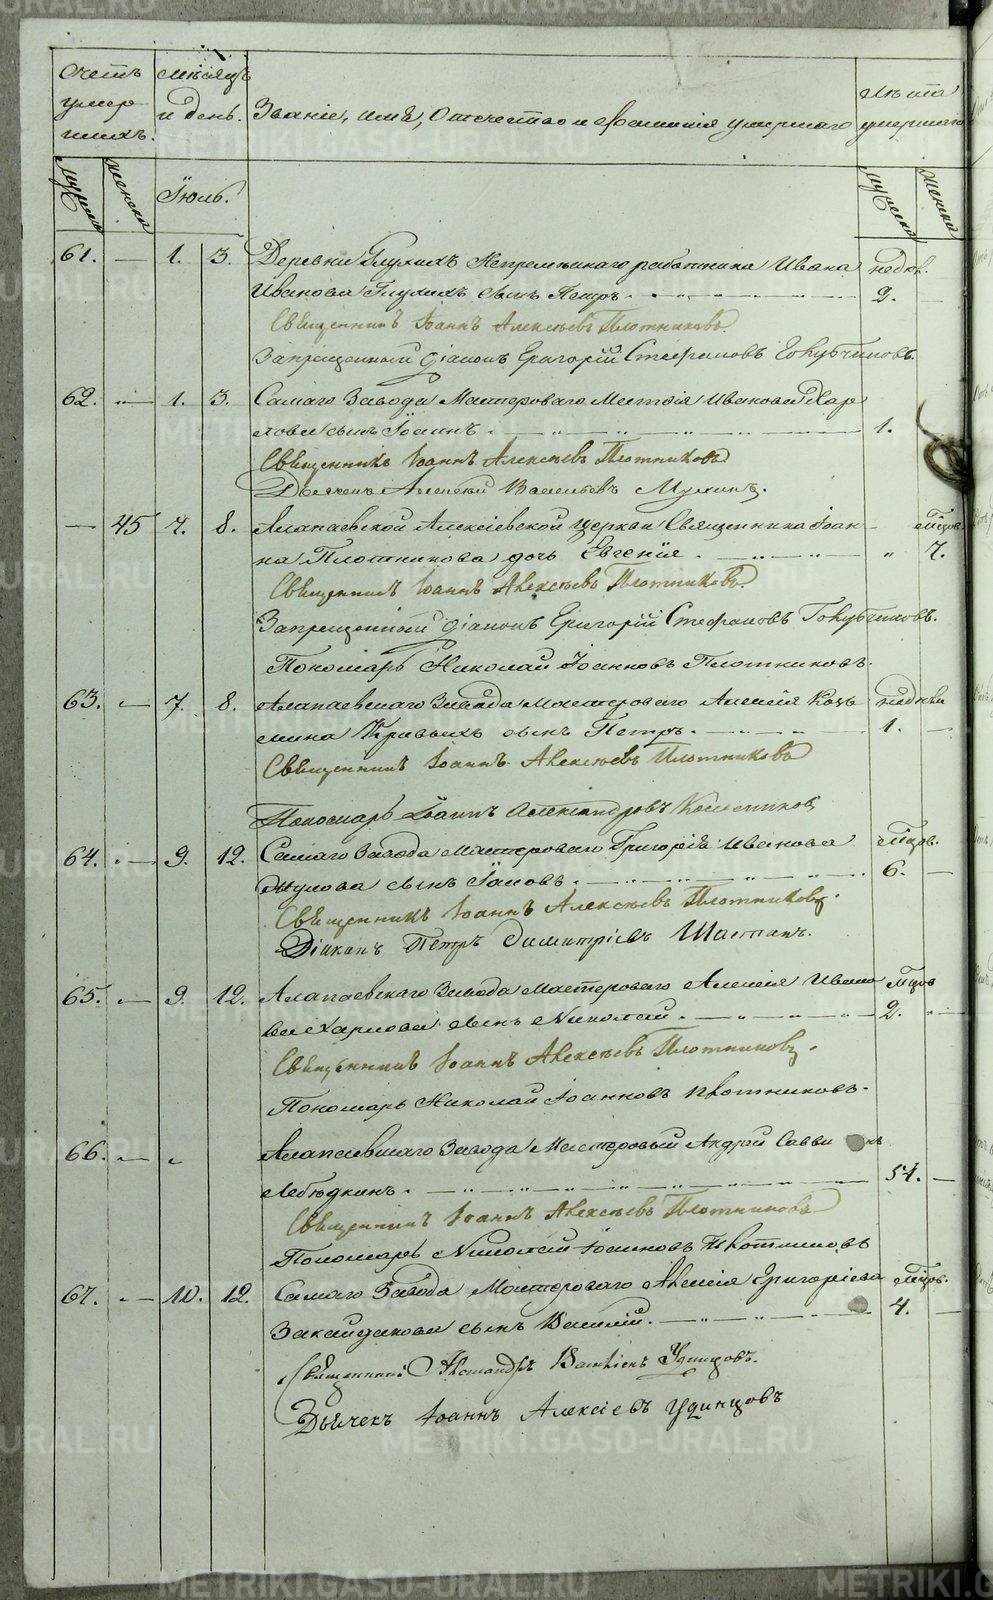 Счетъ умер шихъ.
Мѣсяцъ и день.
Званіе, имя, отечество и фамилія умершаго
Лѣта умершаго
мужска
женска
Іюль.
мужска
женска
61. — 1. 3. Деревни Глухихъ Непремѣннаго работника Ивана недѣл.
Иванова Глухихъ сынъ Петръ. 2.
Священникъ Іоаннъ Алексѣевъ Плотниковъ
Запрещенный діаконъ Григорій Стефановъ Голубчиковъ.
62. — 1. 3. Самаго Завода Мастероваго Иванова Хар
лова сынъ Іоаннъ. 1.
Священникъ Іоаннъ Алексѣевъ Плотниковъ
Дьячекъ Алексѣй Васильевъ
— 45 7. 8. Алапаевской Алексіевской церкви Священника Іоан- мѣсяц.
на Плотникова дочь Евгенія. 7.
Священникъ Іоаннъ Алексѣевъ Плотниковъ.
Запрещенный діаконъ Григорій Стефановъ Голубчиковъ.
Пономарь Николай Іоанновъ Плотниковъ.
63. — 7. 8. Алапаевскаго Завода Мастероваго Алексія Козь недѣли
мина Кривыхъ сынъ Петръ. 1.
Священникъ Іоаннъ Алексѣевъ Плотниковъ
Пономарь Іоаннъ Александровъ
64. — 9. 12. Самаго Завода Мастероваго Григорія Иванова мѣсяц.
сынъ Іаковъ. 6.
Священникъ Іоаннъ Алексѣевъ Плотниковъ.
Діаконъ Петръ Димитріевъ
65. — 9. 12. Алапаевскаго Завода Мастероваго Алексія Ивано мѣсяц
ва Харлова сынъ Николай. 2.
Священникъ Іоаннъ Алексѣевъ Плотниковъ.
Пономарь Николай Іоанновъ Плотниковъ.
66. — Алапаевскаго Завода Мастеровый Андрей Савви нъ
Лебѣдкинъ. 54.
Священникъ Іоаннъ Алексѣевъ Плотниковъ
Пономарь Николай Іоанновъ Плотниковъ
67. — 10. 12. Самаго Завода Мастероваго Алексія Григоріева мѣсяц.
сынъ Василій. 4.
Священникъ Васильевъ Удинцовъ.
Дьячекъ Іоаннъ Алексіевъ Удинцовъ
METRIKI.GASO-URAL.RU